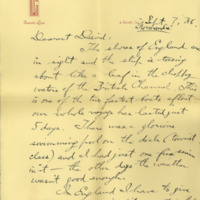 Sept. 7, '36.
Dearest David:
The shores of England are
in sight and the ship is tossing
about like a leaf in the choppy
waters of the British Channel. This
is one of the fastest boats afloat
our whole voyage has lasted just
5 days. There was a glorious
swimming pool on the deck (tourist
class) and I had just one fine swim
in it — the other days the weather
wasn't good enough.
In England I have to give